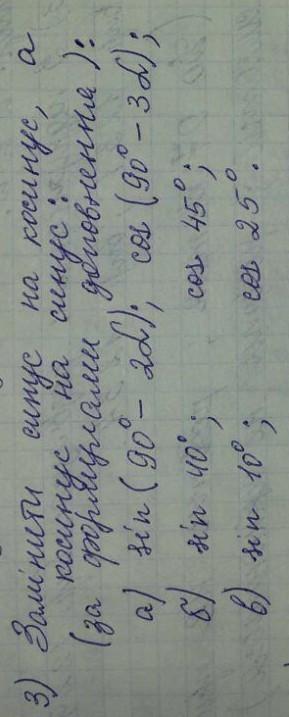 3) Замінити синус на косинус, а
косинус на синус
(за формулами доповнення):
а) sin (90° - 2α); cos (90° - 3α);
б) sin 40°; cos 45°;
в) sin 10°; cos 25°.